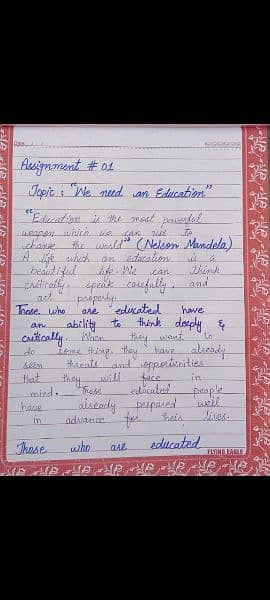 Assignment # 01
Topic : "We need an Education"
"Education is the most powerful
weapon which we can use to
change the world" (Nelson Mandela)
A life which an education is a
beautiful life. We can think
critically, speak carefully, and
act properly.
Those who are educated have
an ability to think deeply &
critically. When they want to
do some thing, they have already
seen threats and opportunities
that they will face in
mind. Those educated people
have already prepared well
in advance for their lives.
Those who are educated
FLYING EAGLE